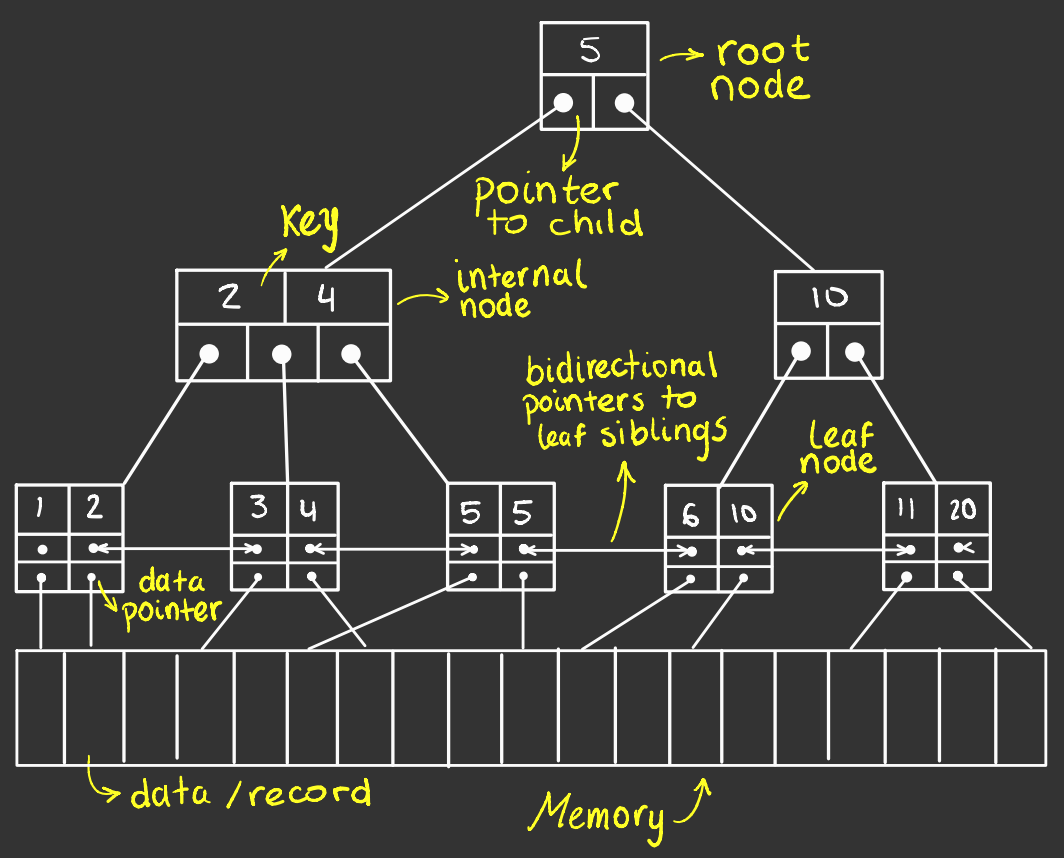 5
root
node
pointer
to child
Key
2 4
internal
node
10
bidirectional
pointers to
leaf siblings
leaf
node
1 2
3 4
5 5
6 10
11 20
data
pointer
data/record
Memory